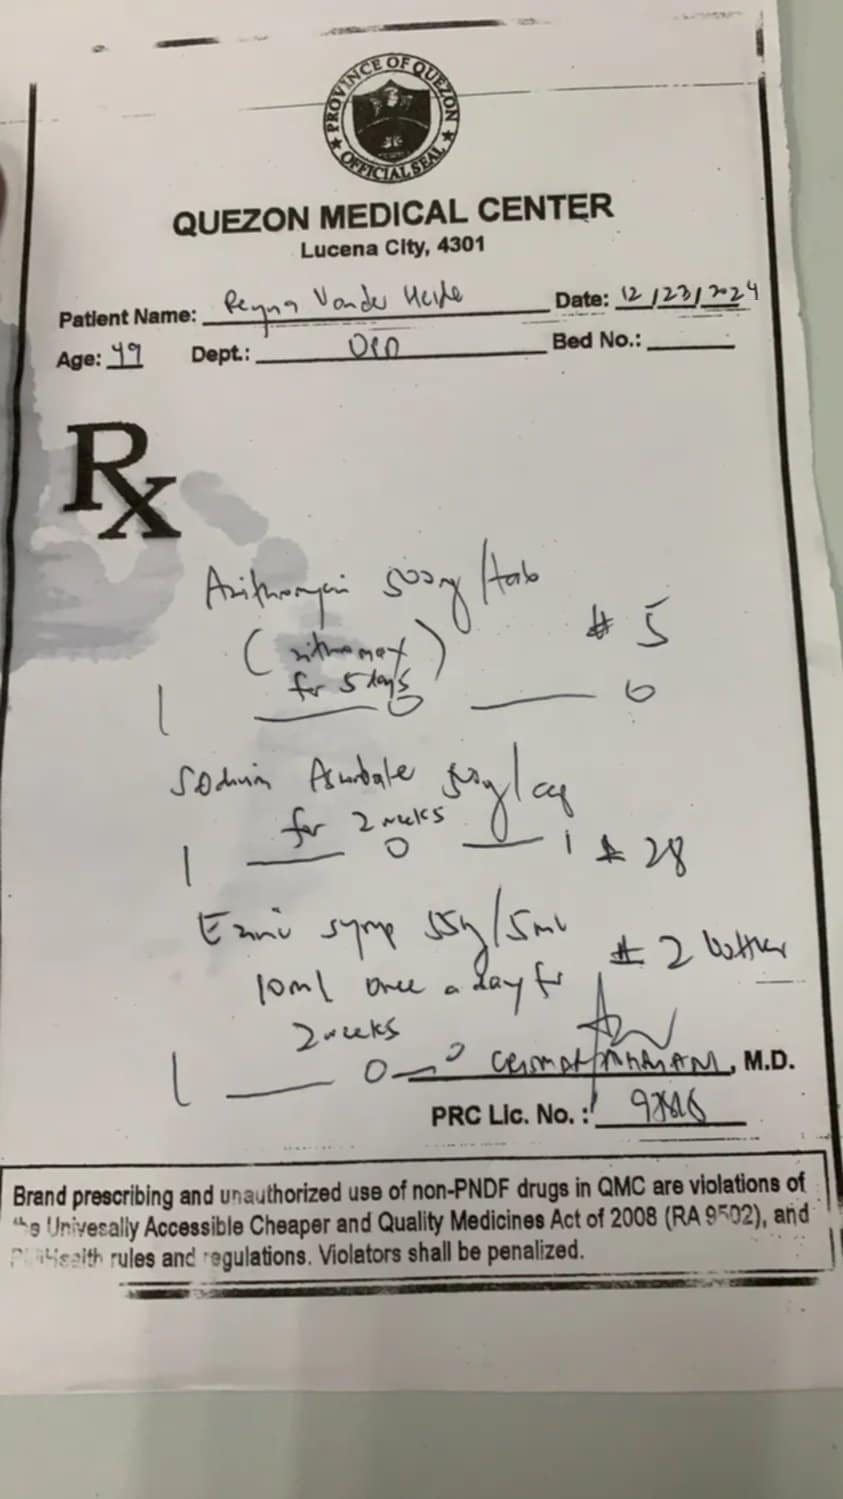 PROVINCE OF QUEZON
OFFICIAL SEAL
QUEZON MEDICAL CENTER
Lucena City, 4301
Patient Name: Reyna Vander Heide Date: 12/23/2024
Age: 49 Dept.: OPD Bed No.:
Rx
Azithromycin 500mg/tab
(zithromax) # 5
for 5 days
1 — 0 — 0
Sodium Ascorbate 500mg/cap
for 2 weeks
1 — 0 — 1 # 28
syrup 55mg/5ml
10ml once a day for # 2 bottles
2 weeks
1 — 0 — 0
, M.D.
PRC Lic. No.:
Brand prescribing and unauthorized use of non-PNDF drugs in QMC are violations of
the Univesally Accessible Cheaper and Quality Medicines Act of 2008 (RA 9502), and
PhilHealth rules and regulations. Violators shall be penalized.